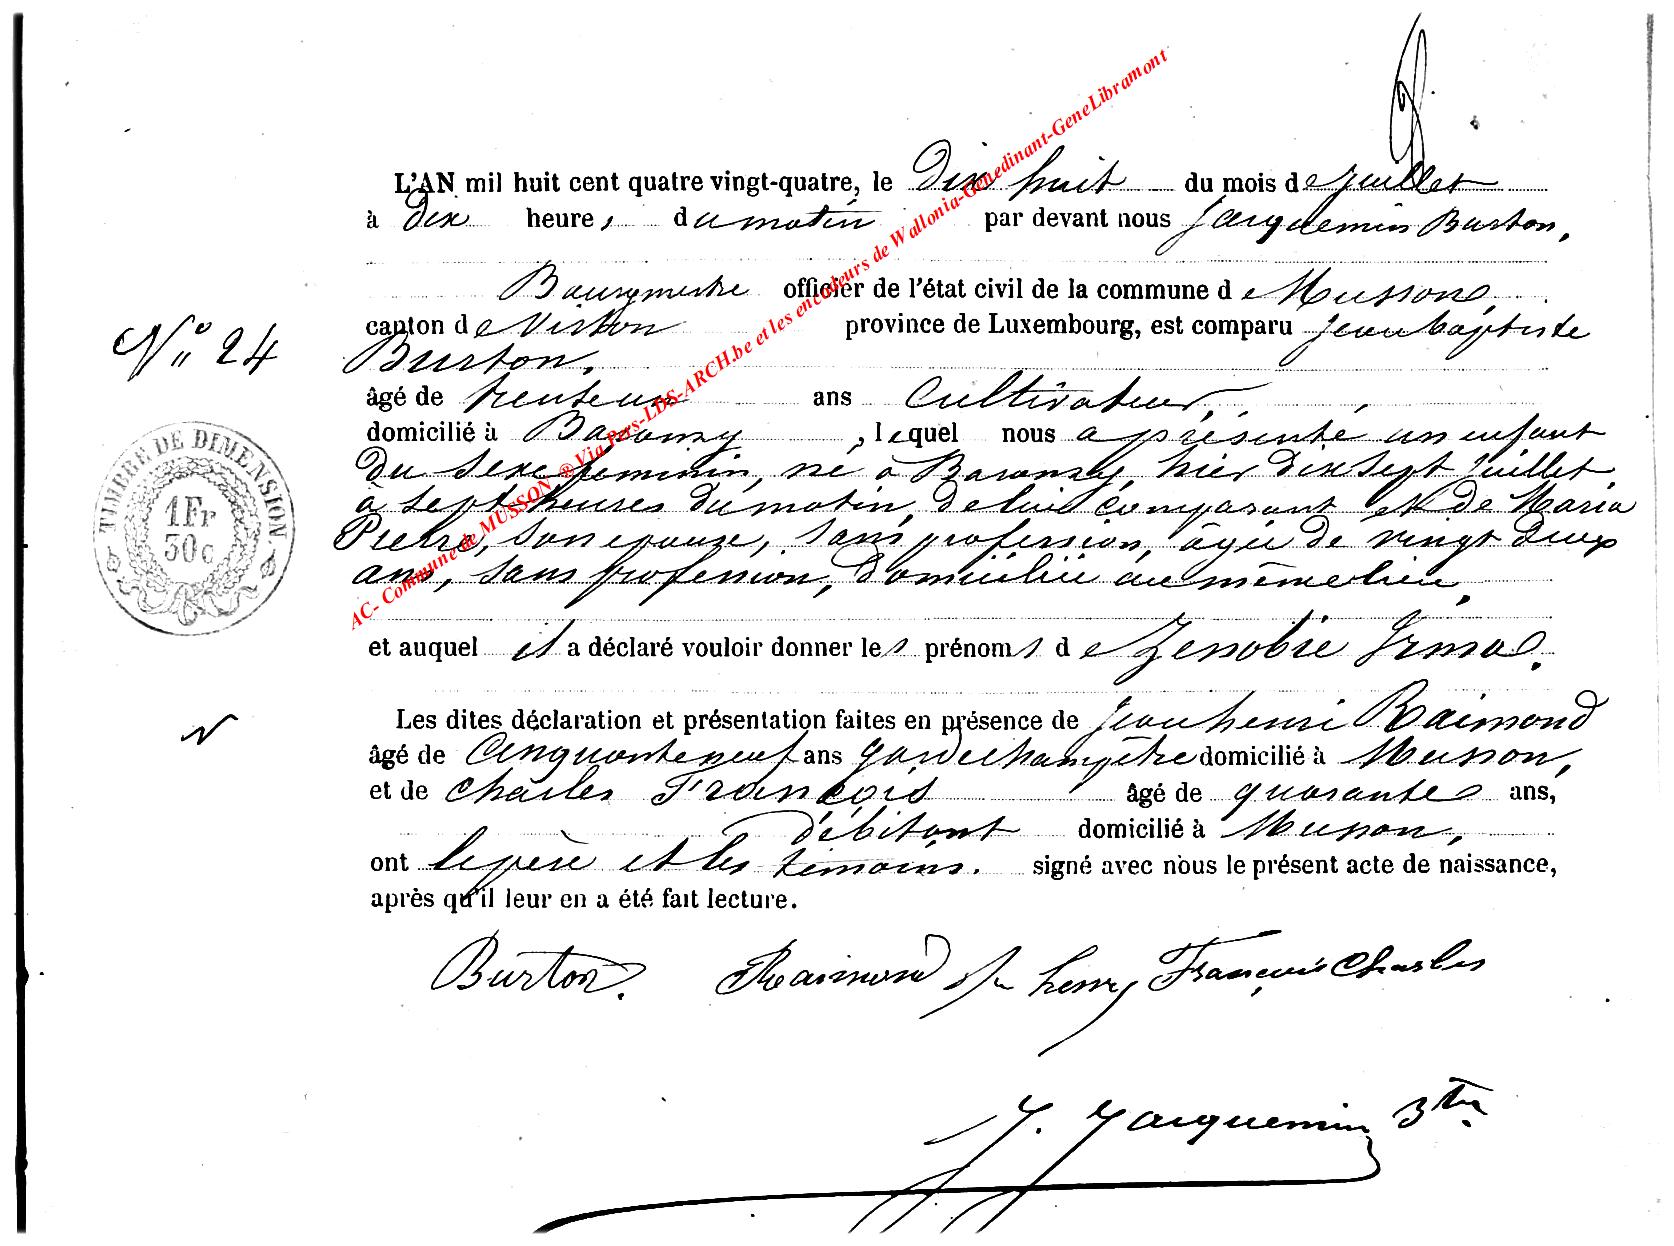 L'AN mil huit cent quatre vingt-quatre, le Dix huit du mois de juillet
à Dix heures du matin par devant nous Jacquemin Burton,
Bourgmestre officier de l'état civil de la commune de Musson,
canton de Virton province de Luxembourg, est comparu Jean baptiste
N° 24
Burton,
âgé de trente un ans Cultivateur,
domicilié à Baranzy, lequel nous a présenté un enfant
Du sexe feminin, né à Baranzy, hier Dix sept juillet,
à sept heures du matin, de lui comparant et de Maria
Pierre, son epouze, sans profession, âgée de vingt deux
ans, sans profession, Domiciliée au même lieu,
et auquel il a déclaré vouloir donner les prénoms de Zenobie Irma.
Les dites déclaration et présentation faites en présence de Jean henri Raimond
âgé de Cinquante neuf ans garde champêtre domicilié à Musson,
et de Charles François âgé de quarante ans,
débitant domicilié à Musson,
ont le père et les témoins. signé avec nous le présent acte de naissance,
après qu'il leur en a été fait lecture.
Burton. Raimond j/n henry François Charles
J. Jacquemin Btre
TIMBRE DE DIMENSION
1Fr
50c
AC- Commune de MUSSON ® Via Pers-LDS-ARCH.be et les encodeurs de Wallonia-Genedinant-GeneLibramont